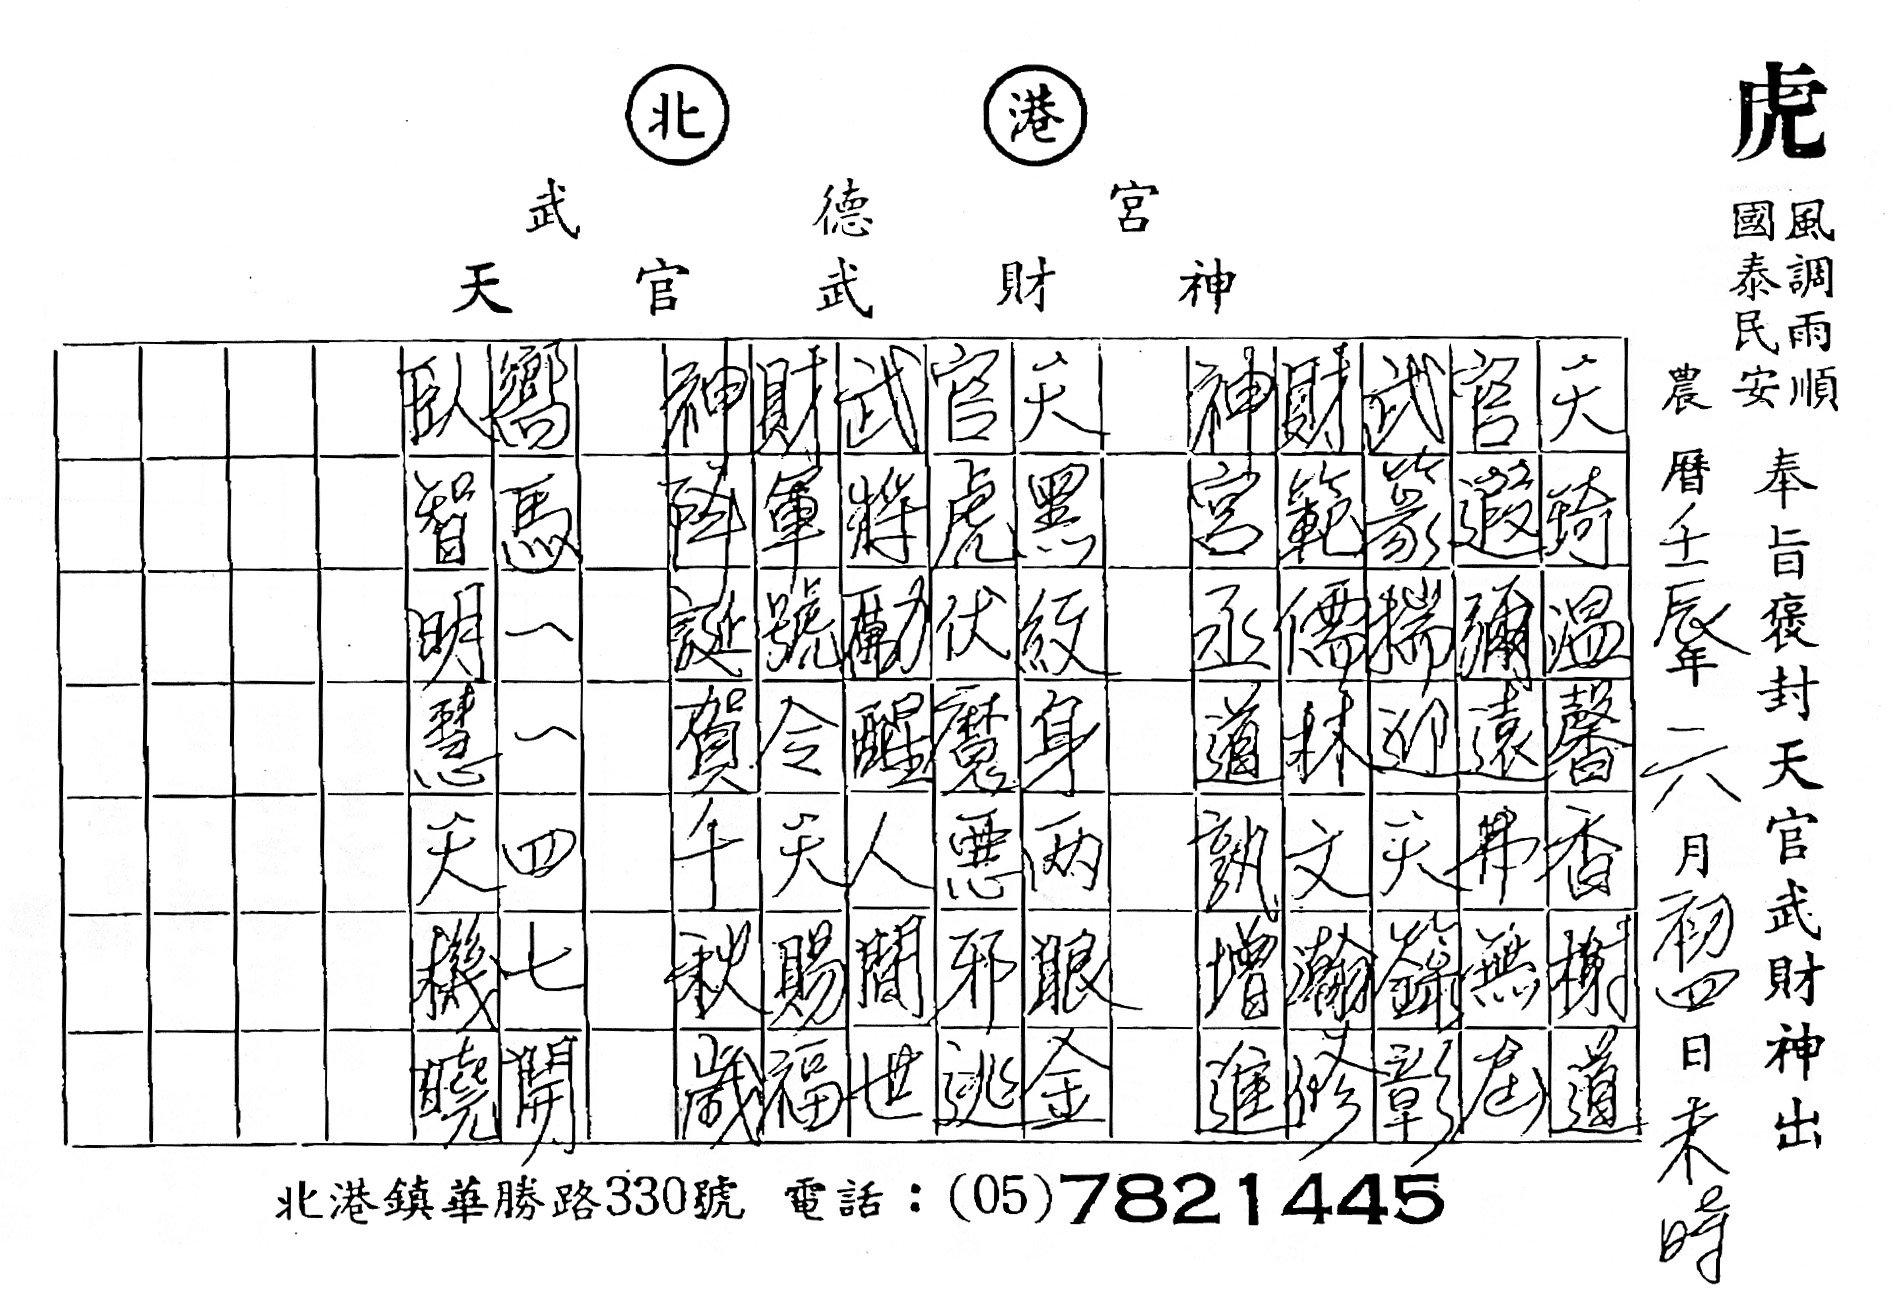 虎
風調雨順
國泰民安
奉旨褒封天官武財神出
農曆壬辰年六月初四日未時
北港
武德宮
天官武財神
天琦温馨香榭道
官遐彌遠弗無屆
武篆揣迎天籙彰
財範儒林文瀚修
神宮丞道訓增進
天黑紋身兩眼金
官虎伏魔惡邪逃
武將勵醒人間世
財軍號令天賜福
神誕賀千秋歲
馬一一四七開
臥智明慧天機曉
北港鎮華勝路330號 電話：(05)7821445